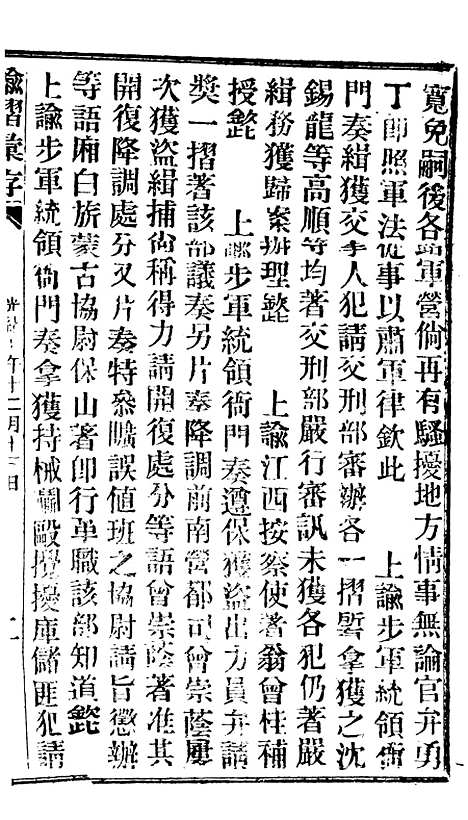 寬免嗣後各路軍營倘再有騷擾地方情事無論官弁勇
丁卽照軍法從事以肅軍律欽此　上諭步軍統領衙
門奏緝獲交拏人犯請交刑部審辦各一摺所拏獲之沈
錫龍等高順等均著交刑部嚴行審訊未獲各犯仍著嚴
緝務獲歸案辦理欽此　上諭江西按察使著翁曾桂補
授欽此　上諭步軍統領衙門奏遵保獲盜出力員弁請
獎一摺著該部議奏另片奏降調前南營都司曾崇蔭屢
次獲盜緝捕尙稱得力請開復處分等語曾崇蔭著准其
開復降調處分又片奏特參曠誤値班之協尉請旨懲辦
等語廂白旂蒙古協尉保山著卽行革職該部知道欽此
上諭步軍統領衙門奏拿獲持械鬭毆攪擾庫儲匪犯請
諭摺彙存　光緒　年十二月十三日